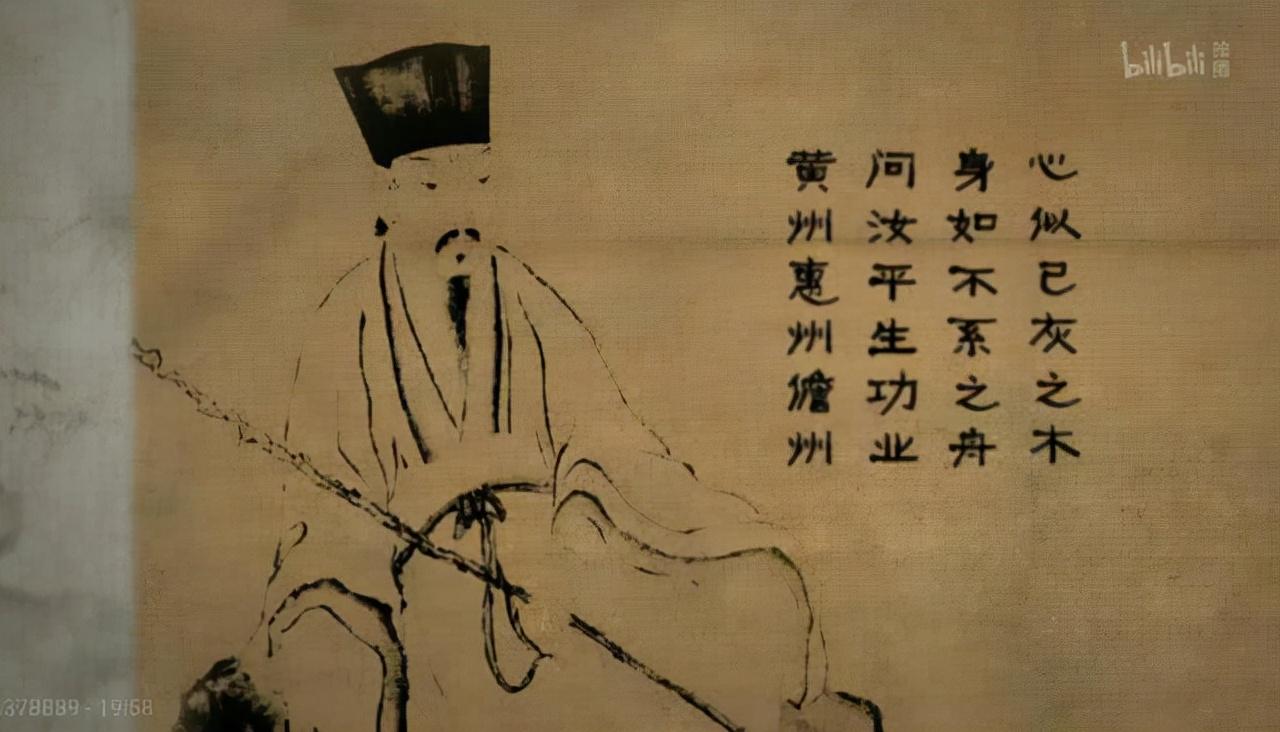 bilibili
心似已灰之木
身如不系之舟
问汝平生功业
黄州惠州儋州
378889 - 19168